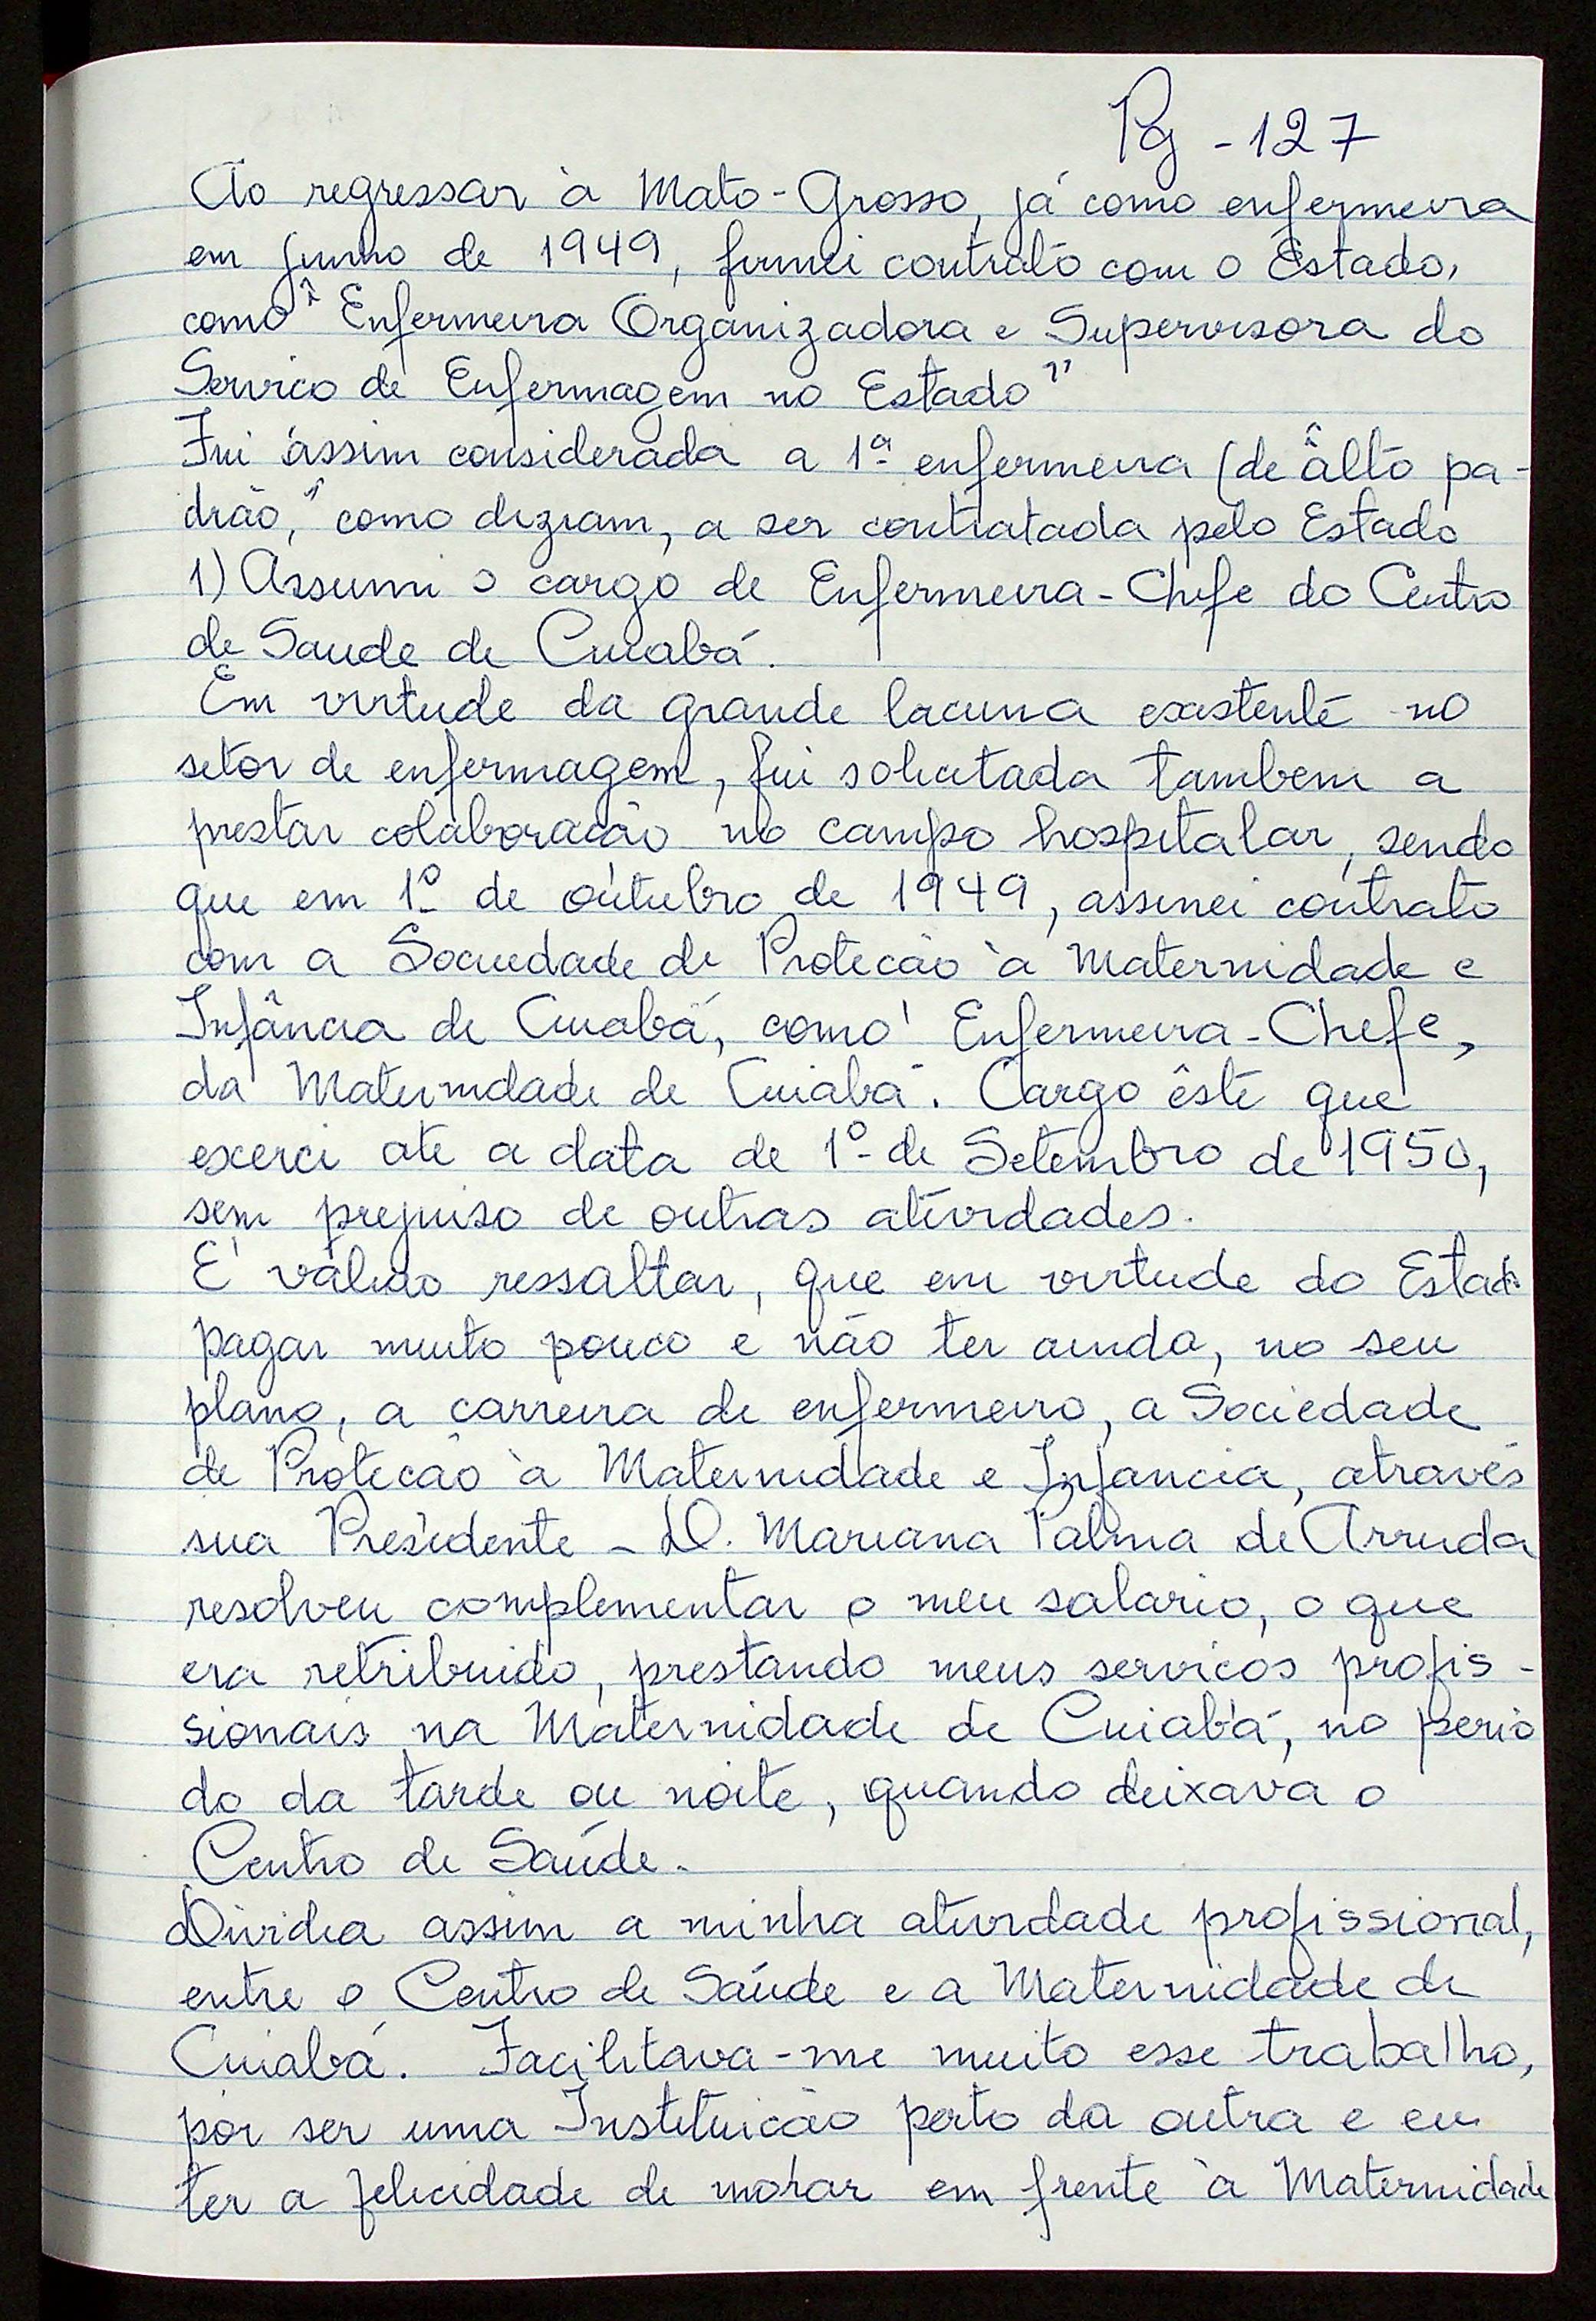 Pg - 127
Ao regressar à Mato-Grosso, já como enfermeira
em junho de 1949, firmei contrato com o Estado,
como "Enfermeira Organizadora e Supervisora do
Servico de Enfermagem no Estado"
Fui assim considerada a 1ª enfermeira (de "alto pa-
drão," como diziam, a ser contratada pelo Estado
1) Assumi o cargo de Enfermeira-Chefe do Centro
de Saude de Cuiabá.
Em virtude da grande lacuna existente no
setor de enfermagem, fui solicitada tambem a
prestar colaboracão no campo hospitalar, sendo
que em 1º de outubro de 1949, assinei contrato
com a Sociedade de Protecão à Maternidade e
Infância de Cuiabá, como Enfermeira-Chefe,
da Maternidade de Cuiabá. Cargo êste que
exerci ate a data de 1º de Setembro de 1950,
sem prejuiso de outras atividades.
É válido ressaltar, que em virtude do Estado
pagar muito pouco e não ter ainda, no seu
plano, a carreira de enfermeiro, a Sociedade
de Protecão à Maternidade e Infancia, através
sua Presidente - D. Mariana Palma de Arruda
resolveu complementar o meu salario, o que
era retribuido, prestando meus servicos profis-
sionais na Maternidade de Cuiabá, no perio
do da tarde ou noite, quando deixava o
Centro de Saúde.
Dividia assim a minha atividade profissional,
entre o Centro de Saúde e a Maternidade de
Cuiabá. Facilitava-me muito esse trabalho,
por ser uma Instituicão perto da outra e eu
ter a felicidade de morar em frente à Maternidade